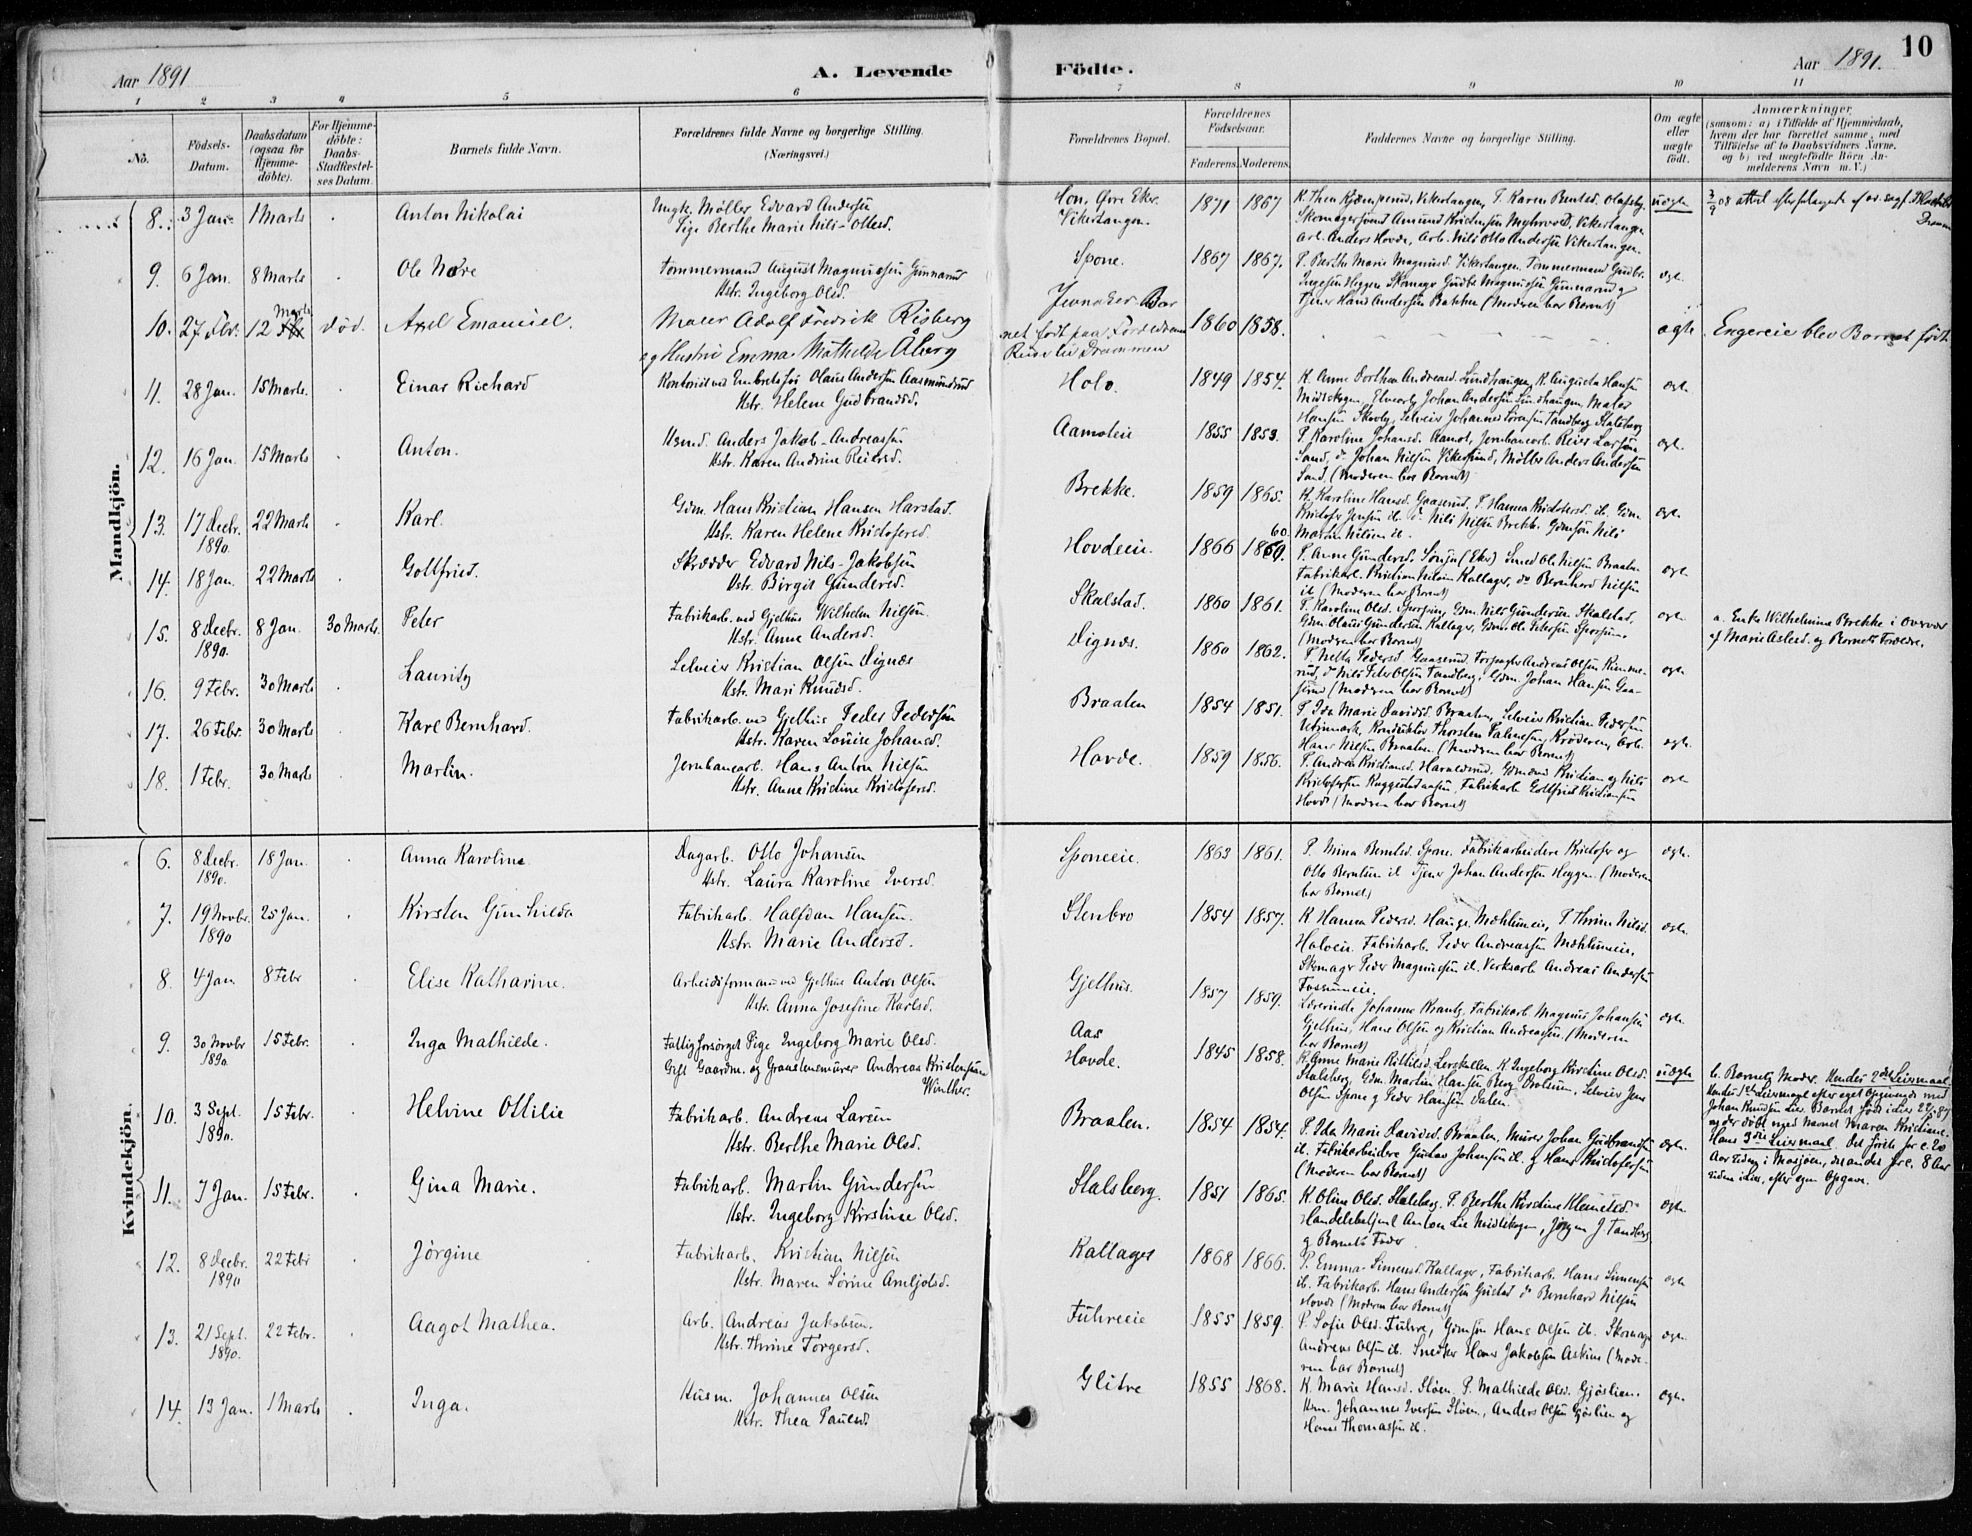 10
Aar 1891
A. Levende Födte.
Aar 1891.
1 2 3 4 5 6 7 8 9 10 11
No.
Födsels-Datum.
Daabsdatum (ogsaa for Hjemme-döbte).
For Hjemme-döbte: Daabs-Stadfæstel-ses Datum.
Barnets fulde Navn.
Forældrenes fulde Navne og borgerlige Stilling. (Næringsvei.)
Forældrenes Bopæl.
Forældrenes Födselsaar.
Faderens. Moderens.
Faddernes Navne og borgerlige Stilling.
Om ægte eller uægte födt.
Anmærkninger, (saasom: a) i Tilfælde af Hjemmedaab, hvem der har forrettet samme, med Tilföielse af to Daabsvidners Navne. og b) ved uægtefödte Börn An-melderens Navn m. V.)
Mandkjön.
8. 3 Jan. 1 Marts . Anton Nikolai
Ungk. Møller Edvard Andersen
Pige Berthe Marie Nils-Ottesd.
Hon, Øvre Eker.
Vikerstangen.
1871 1867
Skomagersvend Amund Kristensen Myhrvold, Vikerstangen
Arb. Anders Hovde, Arb. Nils Otto Andersen Vikerstangen.
uægte
9. 6 Jan. 8 Marts . Ole Nore
Tømmermand August Magnussen Gunnarud
Hstr. Ingeborg Olsd.
Spone. 1867 1867.
P. Berthe Marie Magnusd. Vikerstangen. Tømmermand Gudbr.
Tjener Hans Andersen Bakken (Moderen bar Barnet)
ægte
10. 27 Febr. 12 Marts død. Axel Emanuel.
Maler Adolf Fredrik Risberg
og Hustru Emma Mathilde Åberg
Jevnaker Bar
net født paa
Drammen
1860 1858.
ægte
Engereie blev Barnet født
11. 28 Jan. 15 Marts. . Einar Richard
Kontorist ved Embretsfos Olaus Andersen Aasmundrud
Hstr. Helene Gudbrandsd.
Holo. 1849 1854.
K. Anne Dorthea Andreasd. Lundhaugen, K. Augusta Hansen
Midtskogen, Johan Andersen Lundhaugen, Maler
ægte
12. 16 Jan. 15 Marts . Anton.
Usmd. Anders Jakob-Andreassen
Hstr. Karen Andrine Reiersd.
Aamoteie 1855 1853.
P. Karoline Johansd. Aamot, Jernbanearb. Reier Larsen
Sand, do Johan Nilsen Vikersund, Møller Anders Andersen
Sand. (Moderen bar Barnet)
ægte
13. 17 Decbr. 1890. 22 Marts . Karl.
Gdm. Hans Kristian Hansen Harstad.
Hstr. Karen Helene Kristofersd.
Brekke. 1859 1865.
K. Karoline Hansd. Gaaserud, P. Hanna Kristofersd. ib. Gdm.
Kristofer Jensen ib. do Nils Nilsen Brekke. Gdmsøn Nils
Martin Nilsen ib.
ægte
14. 18 Jan. 22 Marts . Gottfried.
Skrædder Edvard Nils-Jakobsen
Hstr. Birgit Gundersd.
Hovdeeie. 1866 1860.
P. Anne Gundersd. (Eker) Smed Ole Nilsen Braaten
Fabrikarb. Kristian Nilsen Kallager, do Bernhard Nilsen
ib (Moderen bar Barnet)
ægte
15. 8 Decbr. 1890. 8 Jan. 30 Marts. Peter
Fabrikarb. ved Gjethus Wilhelm Nilsen.
Hstr. Anne Andersd.
Skalstad. 1860 1861.
P. Karoline Olsd. Sporsem, Gdm. Nils Gundersen Skalstad,
Gdm. Olaus Gundersen Kallager, Gdm. Ole Petersen Sporsem.
(Modren bar Barnet)
ægte
a. Enke Wilhelmine Brekke i Overvær
af Marie Aslesd. og Barnets Forældre.
16. 9 Febr. 30 Marts . Lauritz
Selveier Kristian Olsen Dignæs
Hstr. Mari Knudsd.
Dignæs. 1860 1862.
P. Netta Pedersd. Gaaserud, Forpagter Andreas Olsen Kimme-
rud, do Nils Peter Olsen Tandberg, Gdm. Johan Hansen Gaa-
serud (Modren bar Barnet)
ægte
17. 26 Febr. 30 Marts . Karl Bernhard.
Fabrikarb. ved Gjethus Peder Pedersen
Hstr. Karen Louise Johansd.
Braaten 1854 1851.
P. Ida Marie Davidsd. Braaten, Selveier Kristian Pedersen
Konduktør Thorsten Krøderen, Arb.
Hans Nilsen Braaten. (Modren bar Barnet)
ægte.
18. 1 Febr. 30 Marts . Martin.
Jernbanearb. Hans Anton Nilsen
Hstr. Anne Kristine Kristofersd.
Hovde. 1859 1856.
P. Andrea Kristiansd. Haraldsrud. Gdmsønr Kristian og Nils
Kristoffersen Fabrikarb. Gottfried Kristiansen
Hovde (Modren bar Barnet)
ægte
Kvindekjön.
6. 8 Decbr. 1890. 18 Jan. . Anna Karoline.
Dagarb. Otto Johansen
Hstr. Laura Karoline Iversd.
Sponeeie. 1863 1861.
P. Mina Berntsd. Spone. Fabrikarbeidere Kristofer og
Otto Berntsen ib Tjener Johan Andersen Heggen. (Moderen
bar Barnet)
ægte.
7. 19 Novbr. 1890 25 Jan. . Kirsten Gunhilda
Fabrikarb. Halfdan Hansen.
Hstr. Marie Andersd.
Stenbro 1854 1857.
K. Hanna Pedersd. Hauge Mæhlumeie, P. Thrine Nilsd.
Holoeie. Fabrikarb. Peder Andreassen Mæhlumeie,
Skomager Peder Magnussen ib. Verksarb Andreas Andersen
Fossumeie.
ægte.
8. 4 Jan. 8 Febr . Elise Katharine.
Arbeidsformand ved Gjethus Anton Olsen
Hstr. Anna Josefine Karlsd.
Gjethus. 1857 1859.
Lærerinde Johanne Krantz, Fabrikarb. Magnus Johansen
Gjethus, Hans Olsen og Kristian Andreassen. (Moderen
bar Barnet)
ægte.
9. 30 Novbr 1890. 15 Febr. . Inga Mathilde.
Fattigforsørget Pige Ingeborg Marie Olsd.
Gift Gaardm. og Graastensmurer Andreas Kristensen
Winther.
Aas
Hovde. 1845 1858.
K. Anne Marie Kittilsd. Lerskallen K. Ingeborg Kirstine Olsd.
Stalsberg, Gdm. Martin Hansen Berg Drolsum, Selveier Jens
Olsen Spone og Peder Hansen Dalen.
uægte
b. Barnets Moder. Hendes 2det Leiermaal.
Hendes 1ste Leiermaal efter eget Opgivende med
Johan Knudsen Lier. Barnet født i Lier 22/5 87
og der døbt med Navnet Maren Kristiane.
Hans 3die Leiermaal. Det første for c. 20
Aar siden i Mosjøen, det andet for c. 8 Aar
siden i Lier, efter egen Opgave.
10. 3 Sept. 1890. 15 Febr. . Helvine Ottilie
Fabrikarb. Andreas Larsen
Hstr. Berthe Marie Olsd.
Braaten. 1854 1854.
P. Ida Marie Davidsd. Braaten, Murer Johan Gudbrandsen
ib. Fabrikarbeidere Gustav Johansen ib. og Hans Kristofersen
(Moderen bar Barnet)
ægte.
11. 7 Jan. 15 Febr. . Gina Marie.
Fabrikarb. Martin Gundersen
Hstr. Ingeborg Kirstine Olsd.
Stalsberg. 1851 1865.
K. Oline Olsd. Stalsberg. P. Berthe Kirstine Klemetsd.
Handelsbetjent Anton Lie Midtskogen, Jørgen J. Tandberg
og Barnets Fader.
ægte.
12. 8 Decbr. 1890 22 Febr . Jörgine
Fabrikarb. Kristian Nilsen
Hstr. Maren Sørine Arneljotsd.
Kallager 1868 1866.
P. Emma Simensd. Kallager, Fabrikarb. Hans Simensen
ib. Fabrikarb. Hans Andersen Gustad do Bernhard Nilsen
Hovde (Modren bar Barnet)
ægte
13. 21 Sept. 1890. 22 Febr. . Aagot Mathea.
Arb. Andreas Jakobsen.
Hstr. Thrine Torgersd.
Fuhreeie 1855 1859.
P. Sofie Olsd. Fuhre, Gdmsøn Hans Olsen ib. Skomager
Andreas Olsen ib. Snedker Hans Jakobsen Askim (Mode-
ren bar Barnet)
ægte.
14. 13 Jan. 1 Marts . Inga.
Husm. Johannes Olsen
Hstr. Thea Paulsd.
Glitre 1855 1868.
K. Marie Hansd. Støen. P. Mathilde Olsd. Gjøslien.
Hsm. Johannes Iversen Støen, Anders Olsen Gjøslien og
Hans Thomassen ib.
ægte.